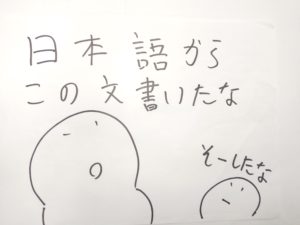 日本語から
この文書いたな
そーしたな